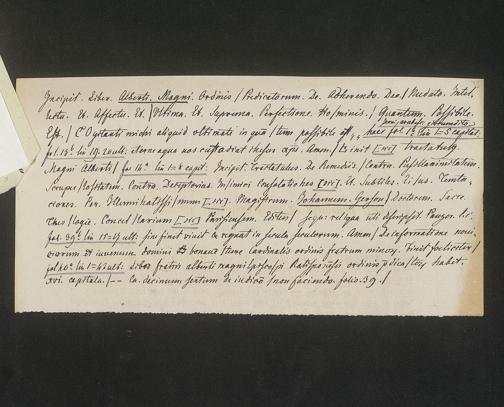 Incipit. Liber. Alberti. Magni. Ordinis / Predicatorum. De. Adherendo. Deo / Nudato. Intel-
lectu. Et. Affectu. Et. / Ultima. Et. Suprema. Perfectione. Ho/minis. / Quantum. Possibile.
Est. / aliquid ultimate in / tem possibile haec fol. 1ª lin 1-5 capitat.
fol. 13ª. lin eterneque nos Amen / Explicit / Tractatulus
Magni Alberti / fol 14ª. lin 1-8 capit: Incipit. Tractatulus. De Remediis / Contra. Pusillanimitatem.
Scrupu/lositatem. Contra. Deceptorias. Inimici consolatio nes [sic] Et. Subtiles. Ei/us. Tenta-
ciones. Per. [sic] Magistrum. Johannem. Gerson / Doctorem. Sacre.
Theo/logie. Cancel/larium [sic] Parisiensem. Editus / reliqua uti descripsit Panzer. l.c.
fol. 39ª. lin 15-17 ult: sine fine vivit & regnat in secula seculorum. Amen / De informatione novi-
ciorum et iuvenum. domini bonaven/ture cardinalis ordinis fratrum minorum. finit feliciter /
fol. 40ª. lin 1-42 ult: Liber fratris alberti magni episcopi Ratisponensis ordinis predica/torum habet.
xvi. capitula. / -- Ca. decimum sextum de iudicio non faciendo. folio. 39. /